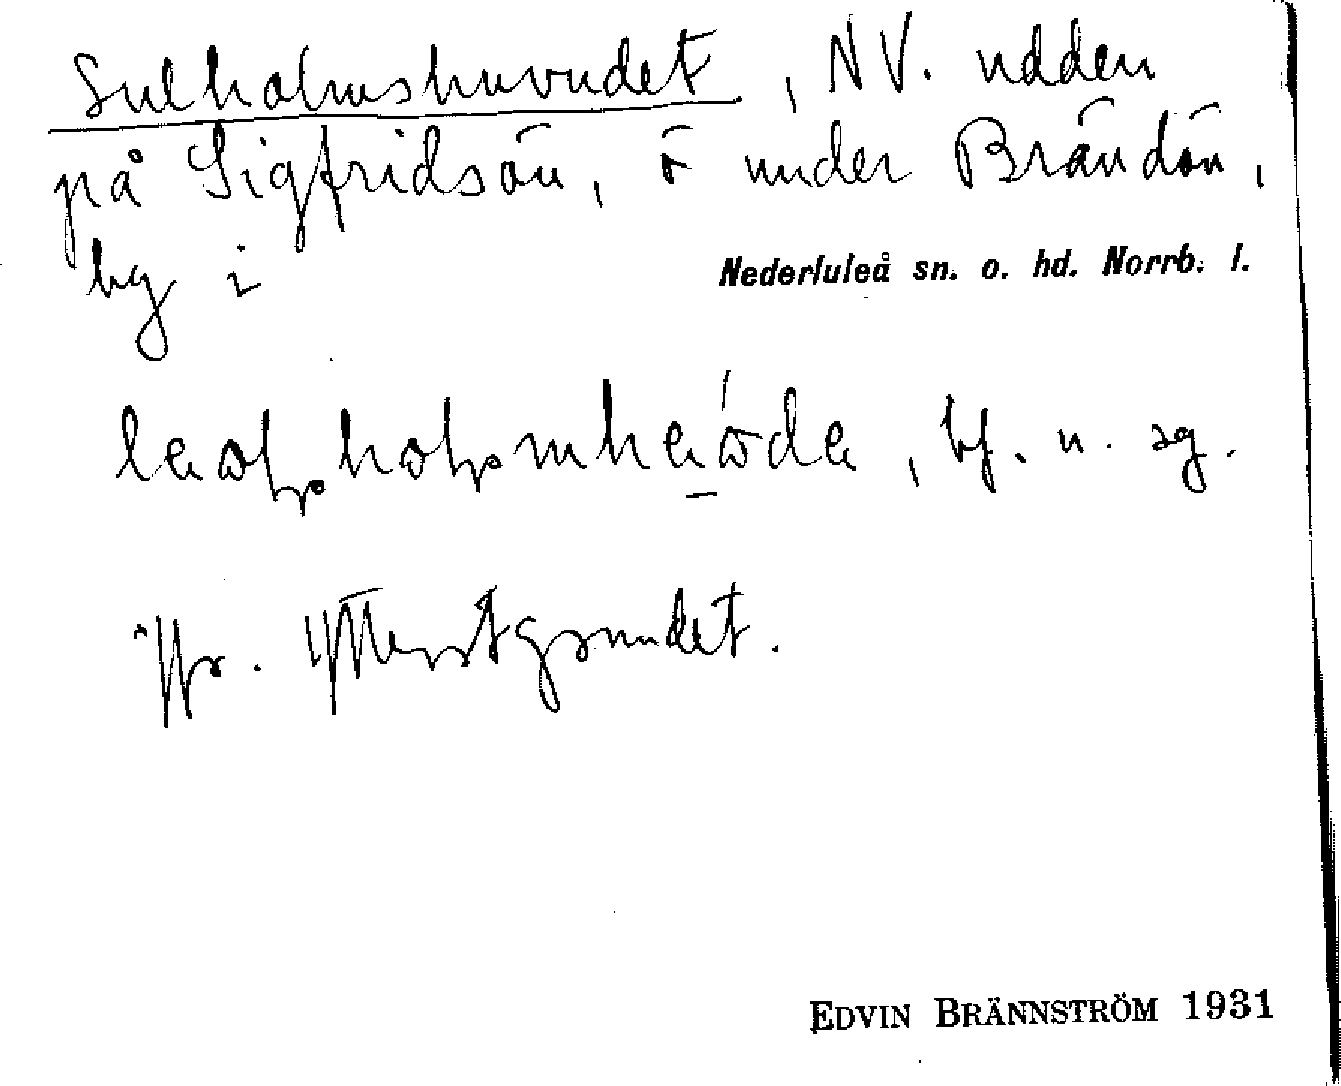 Sulholmshuvudet, NV. udden
på Sigfridsön, ö under Brändön,
by i Nederluleå sn. o. hd. Norrb. l.
bf. n. sg.
EDVIN BRÄNNSTRÖM 1931